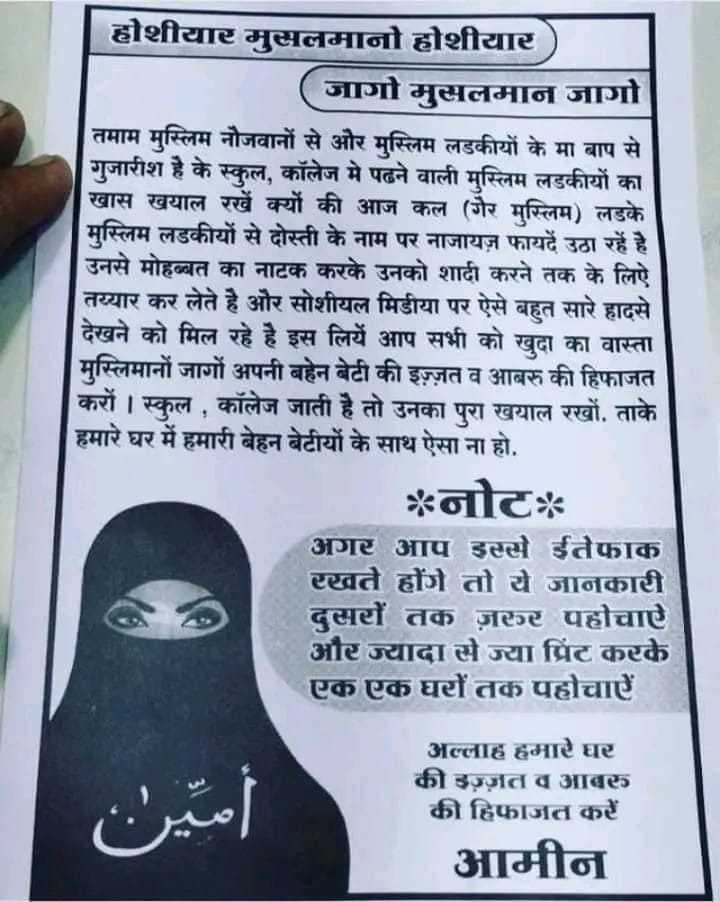 होशीयार मुसलमानो होशीयार
जागो मुसलमान जागो
तमाम मुस्लिम नौजवानों से और मुस्लिम लडकीयों के मा बाप से
गुजारीश है के स्कुल, कॉलेज मे पढने वाली मुस्लिम लडकीयों का
खास खयाल रखें क्यों की आज कल (गैर मुस्लिम) लडके
मुस्लिम लडकीयों से दोस्ती के नाम पर नाजायज़ फायदें उठा रहें है
उनसे मोहब्बत का नाटक करके उनको शादी करने तक के लिऐ
तय्यार कर लेते है और सोशीयल मिडीया पर ऐसे बहुत सारे हादसे
देखने को मिल रहे है इस लियें आप सभी को खुदा का वास्ता
मुस्लिमानों जागों अपनी बहेन बेटी की इज़्ज़त व आबरु की हिफाजत
करों । स्कुल , कॉलेज जाती है तो उनका पुरा खयाल रखों. ताके
हमारे घर में हमारी बेहन बेटीयों के साथ ऐसा ना हो.
*नोट*
अगर आप इससे ईतेफाक
रखते होंगे तो ये जानकारी
दुसरों तक ज़रुर पहोचाऐ
और ज्यादा से ज्या प्रिंट करके
एक एक घरों तक पहोचाऐं
अल्लाह हमारे घर
की इज़्ज़त व आबरु
की हिफाजत करें
आमीन
أمين